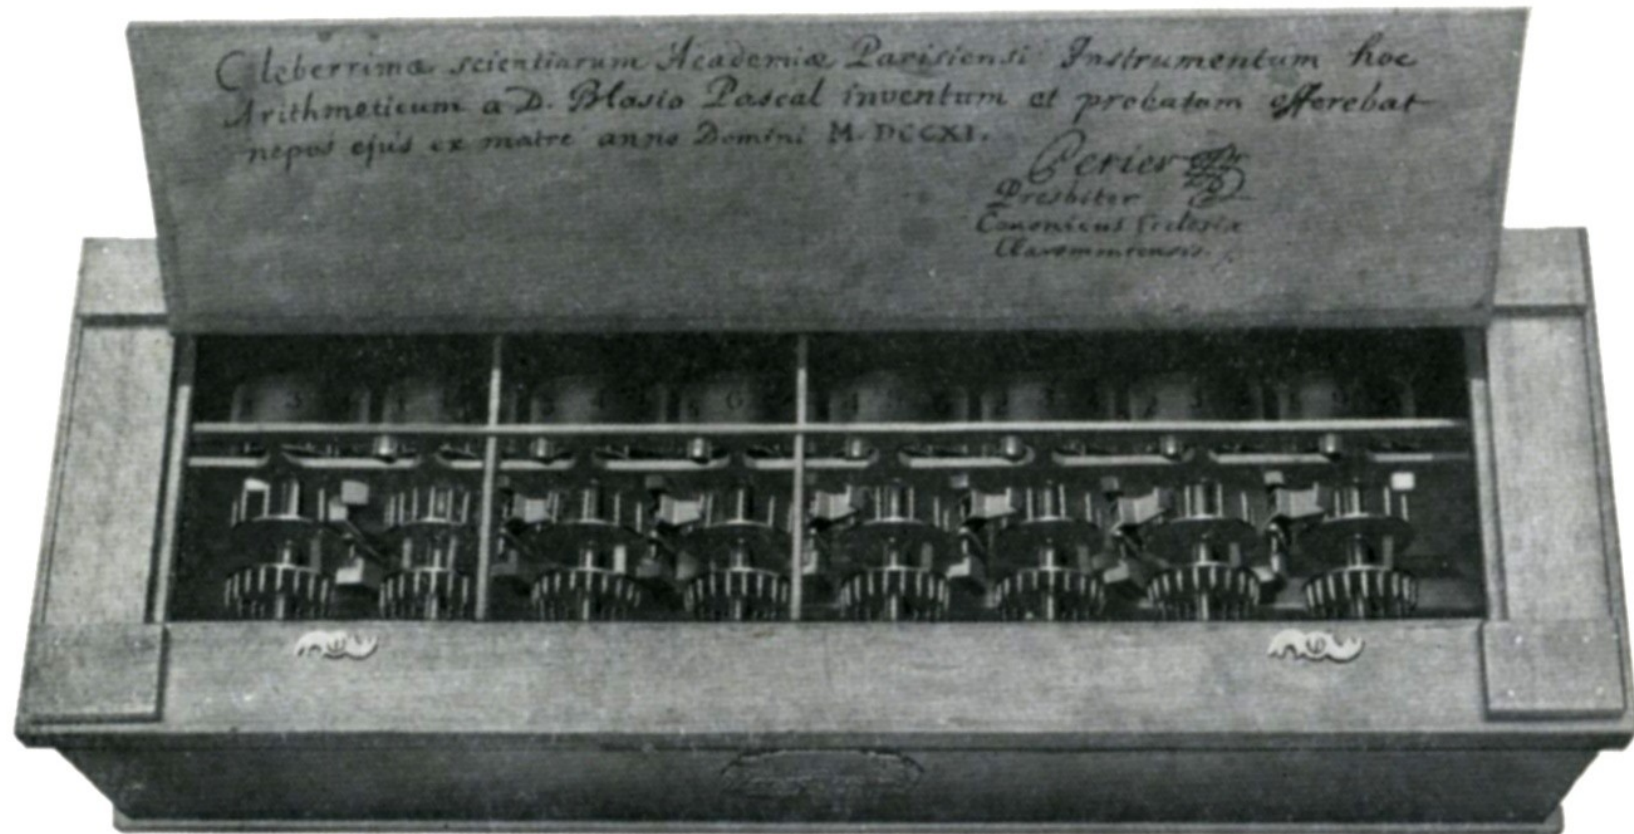 Cleberrimæ scientiarum Academiæ Parisiensi Instrumentum hoc
Arithmeticum a D. Blasio Pascal inventum et probatum offerebat
nepos ejus ex matre anno Domini M. DCCXI.
Perier
Presbiter
Canonicus Ecclesiæ
Claromontensis.